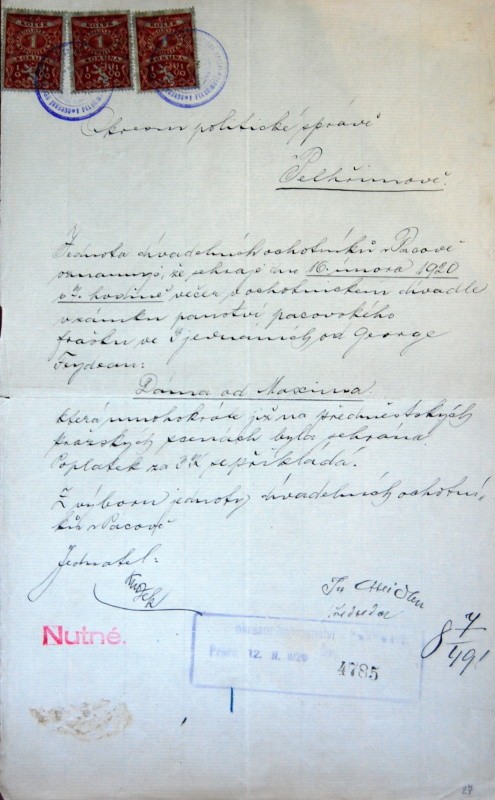 KOLEK KOLEK KOLEK
1 1 1
KORUNA KORUNA KORUNA
Okresní politické správě
v Pelhřimově.
Jednota divadelních ochotníků v Pacově
oznamuje, že sehraje dne 16. února 1920
o 7. hodině večer v ochotnickém divadle
v zámku panství pacovského
frašku ve 3 jednáních od George
Feydeau:
Dáma od Maxima.
která mnohokráte již na předměstských
pražských scenách byla sehrána.
Poplatek za 3 K se přikládá.
Z výboru jednoty divadelních ochotní-
ků v Pacově
Jednatel:
předseda
Nutné.
12. II. 1920
4785
87
49
27